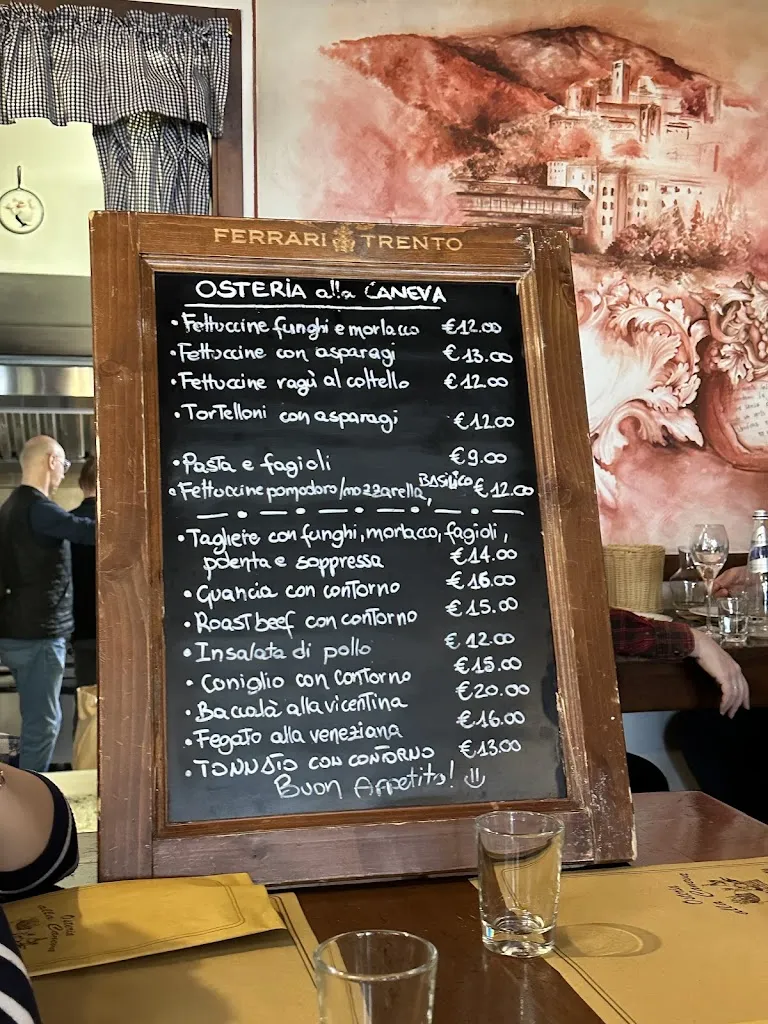 FERRARI TRENTO
OSTERIA alla CANEVA
• Fettuccine funghi e morlacco €12.00
• Fettuccine con asparagi €13.00
• Fettuccine ragù al coltello €12.00
• Tortelloni con asparagi €12.00
• Pasta e fagioli €9.00
• Fettuccine pomodoro/mozzarella, BASILICO €12.00
• Tagliere con funghi, morlacco, fagioli,
polenta e soppressa €14.00
• Guancia con contorno €16.00
• Roastbeef con contorno €15.00
• Insalata di pollo €12.00
• Coniglio con contorno €15.00
• Baccalà alla vicentina €20.00
• Fegato alla veneziana €16.00
• TONNATO CON CONTORNO €13.00
Buon Appetito!
Osteria
alla Caneva
Osteria
alla Caneva